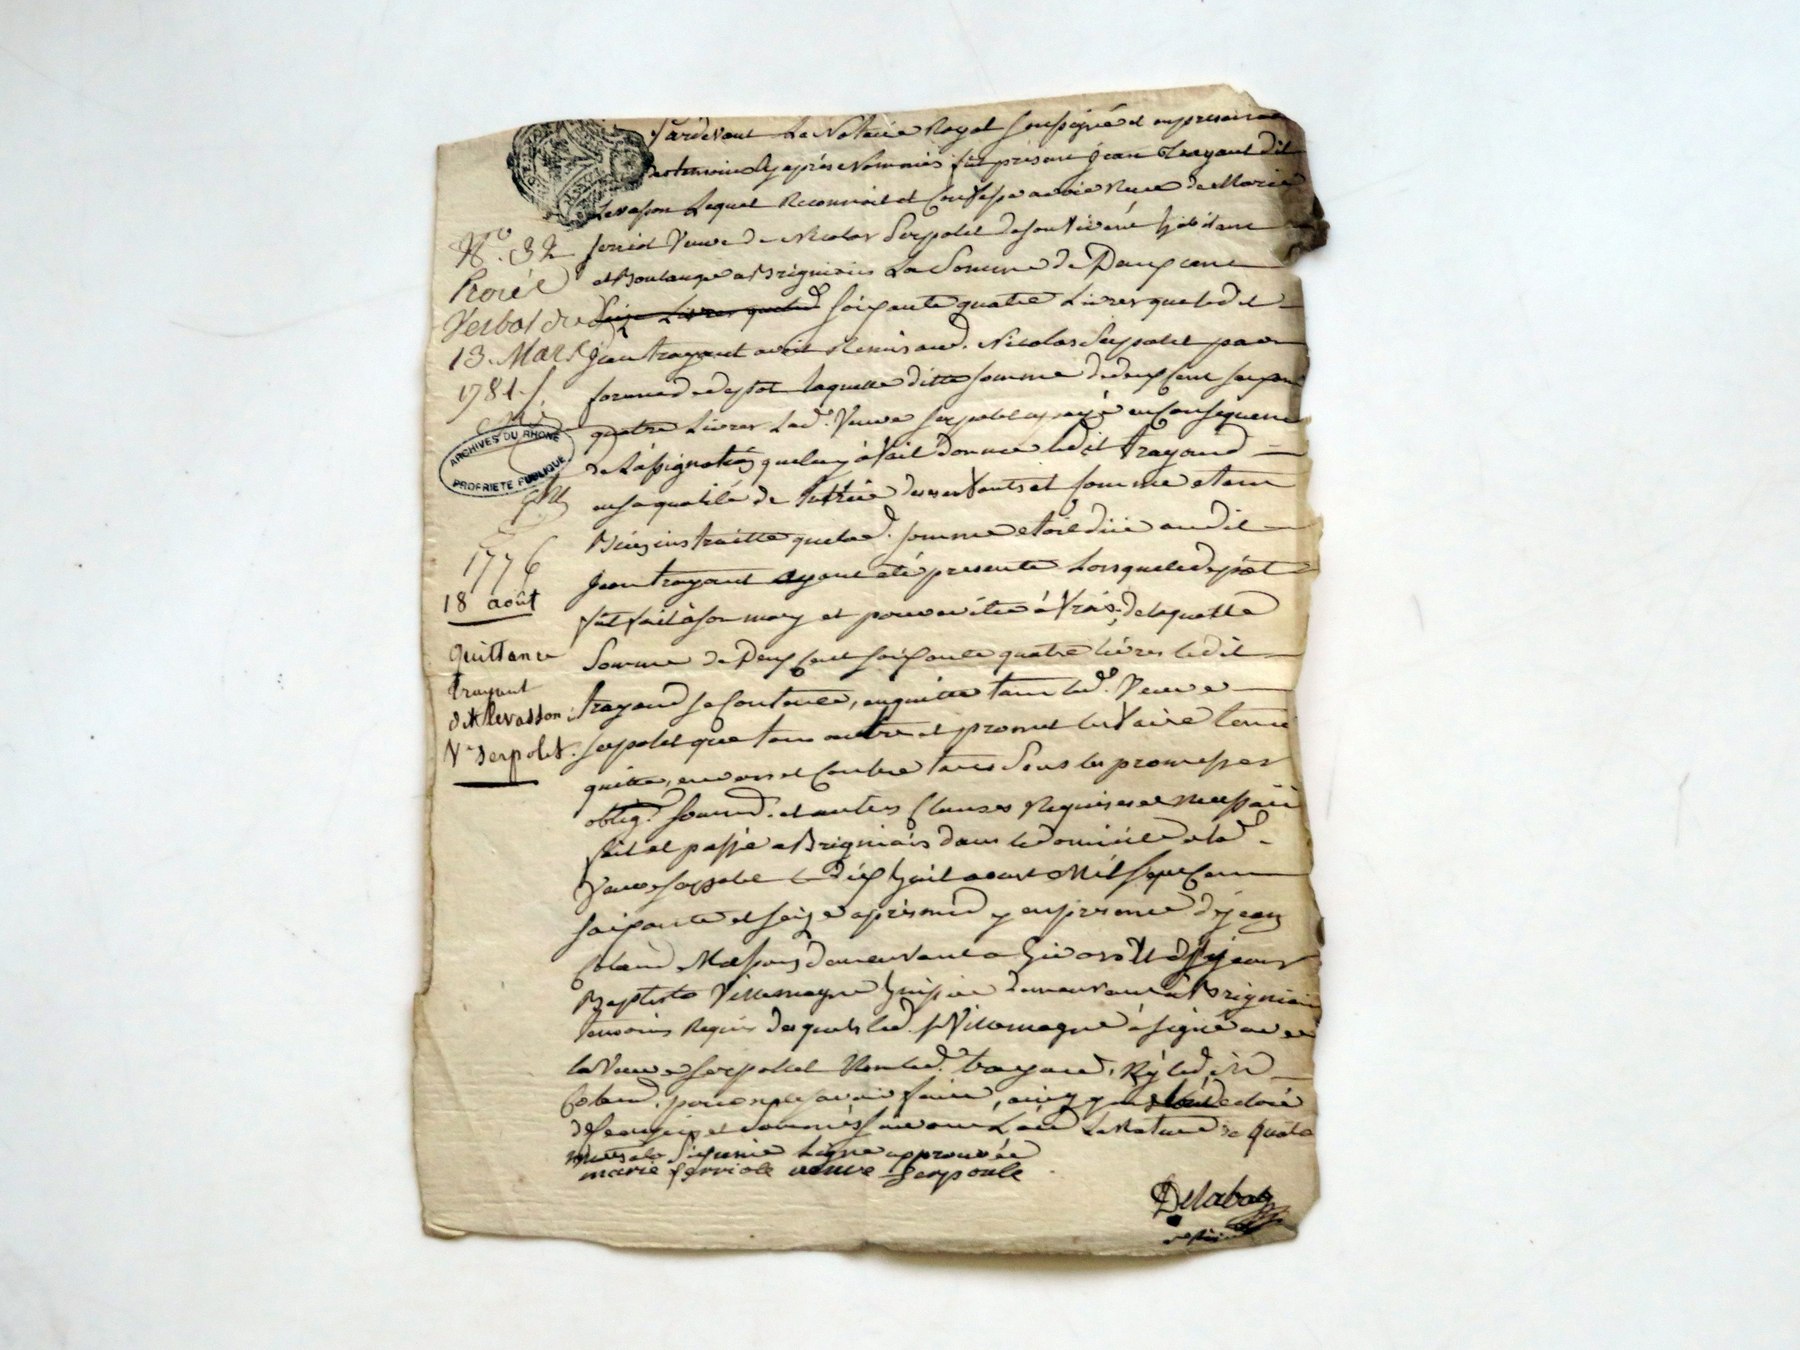 Pardevant Le Notaire Royal soussigné et en presence
des temoins cy après Nommés fut présent jean Trayant dit
Levasson Lequel Reconnoit et Confesse avoir Reçu de Marie
ferriol Veuve de Nicolas Serpolet de son vivant habitant
et Boulanger a Brignais La Somme de Deux cent
Seize Livres que led. soixante quatre Livres que ledit
jean trayant avoit Remis aud. Nicolas Serpolet par
forme de depot laquelle ditte somme de deux Cent soixante
quatre Livres Lad. Veuve Serpolet a payé en Consequence
de L'assignation que luy à fait donner ledit Trayand
en sa qualité de des servants et comme etant
Bien instruitte que lad. somme etoit düe audit
Jean trayant ayant été presente Lorsque le depot
fut fait à son mary et pour eviter à frais, de laquelle
Somme de Deux Cent soixante quatre livres ledit
trayand se Contente, en quitte tant lad. Veuve
serpolet que tous autres et promet les faire tenir
quitte, envers et Contre tous Sous les promesses
oblig. soumd. et autres Clauses Requises et necessaires
fait et passé a Brignais dans le domicile de lad.
Veuve serpolet le dix huit aoust Mil sept Cent
soixante et seize après midy en presence de jean
Coland Masson demeurant a Givors et de jean
Baptiste Villemagne huissier demeurant à Brignais
temoins Requis desquels led. Villemagne à signé avec
la Veuve serpolet Non led. trayand, Ny led.
Coland. pour ne le savoir faire, ainsy qu'ils ont declaré
de ce enquis et sommés suivant L'ord. La Rature de quatre
mots a la Sixieme Ligne approuvée
marie ferriole veuve serpoule
Delabaz
N.° 32
Procés
Verbal du
13. Mars
1781.
ARCHIVES DU RHONE
PROPRIETE PUBLIQUE
1776
18 août
Quittance
trayant
dit levasson
V.e Serpolet.